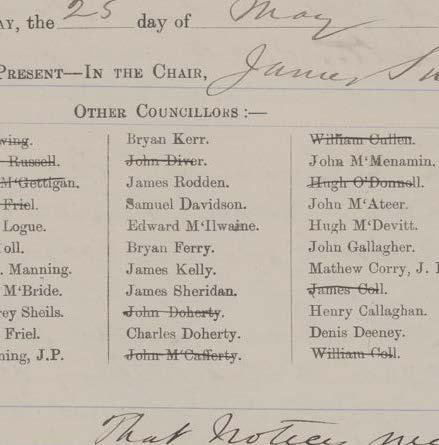 AY, the 25 day of May
PRESENT—IN THE CHAIR, James
OTHER COUNCILLORS :—
wing.
Russell.
M'Gettigan.
Friel.
Logue.
oll.
. Manning.
M'Bride.
rey Sheils.
Friel.
ning, J.P.
Bryan Kerr.
John Diver.
James Rodden.
Samuel Davidson.
Edward M'Ilwaine.
Bryan Ferry.
James Kelly.
James Sheridan.
John Doherty.
Charles Doherty.
John M'Cafferty.
William Cullen.
John M'Menamin.
Hugh O'Donnoll.
John M'Ateer.
Hugh M'Devitt.
John Gallagher.
Mathew Corry, J. P
James Coll.
Henry Callaghan.
Denis Deeney.
William Coll.
That Notice